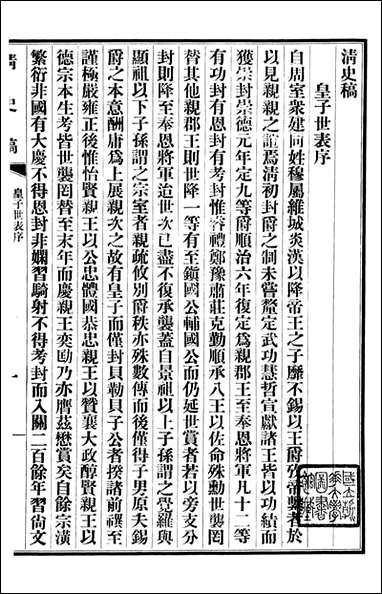 清史稿
皇子世表序
自周室衆建同姓穆屬維城炎漢以降帝王之子靡不錫以王爵攷諸
以見親親之誼焉清初封爵之制未嘗釐定武功慧哲宣獻諸王皆以功績而
獲崇封崇德元年定九等爵順治六年復定爲親郡王至奉恩將軍凡十二等
有功封有恩封有考封惟睿禮鄭豫肅莊克勤順承八王以佐命殊勳世襲罔
替其他親郡王則世降一等有至鎭國公輔國公而仍延世賞者若以旁支分
封則降至奉恩將軍迨世次已盡不復承襲蓋自景祖以上子孫謂之覺羅與
顯祖以下子孫謂之宗室者親疏攸別爵秩亦殊數傳而後僅得子男原夫錫
爵之本意酬庸爲上展親次之故有皇子而僅封貝勒貝子公者揆諸前禩至
謹極嚴雍正後惟怡賢親王以公忠體國恭忠親王以贊襄大政醇賢親王以
德宗本生考皆世襲罔替至末年而慶親王奕劻乃亦膺茲懋賞矣自餘宗潢
繁衍非國有大慶不得恩封非嫻習騎射不得考封而入關二百餘年習尙文
清史稿
皇子世表序
一